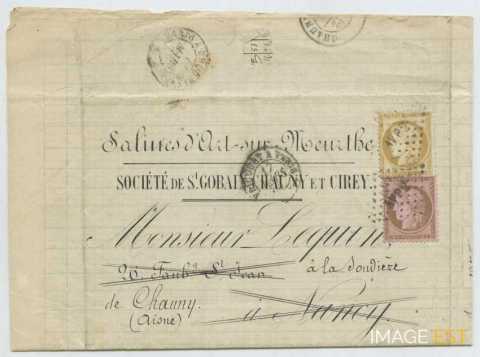 Salines d'Art-sur-Meurthe
SOCIÉTÉ DE St GOBAIN, CHAUNY ET CIREY.
Monsieur Lequin,
26 Faubg St Jean
à la Soudière
de Chauny.
à Nancy.
(Aisne)
IMAGE EST